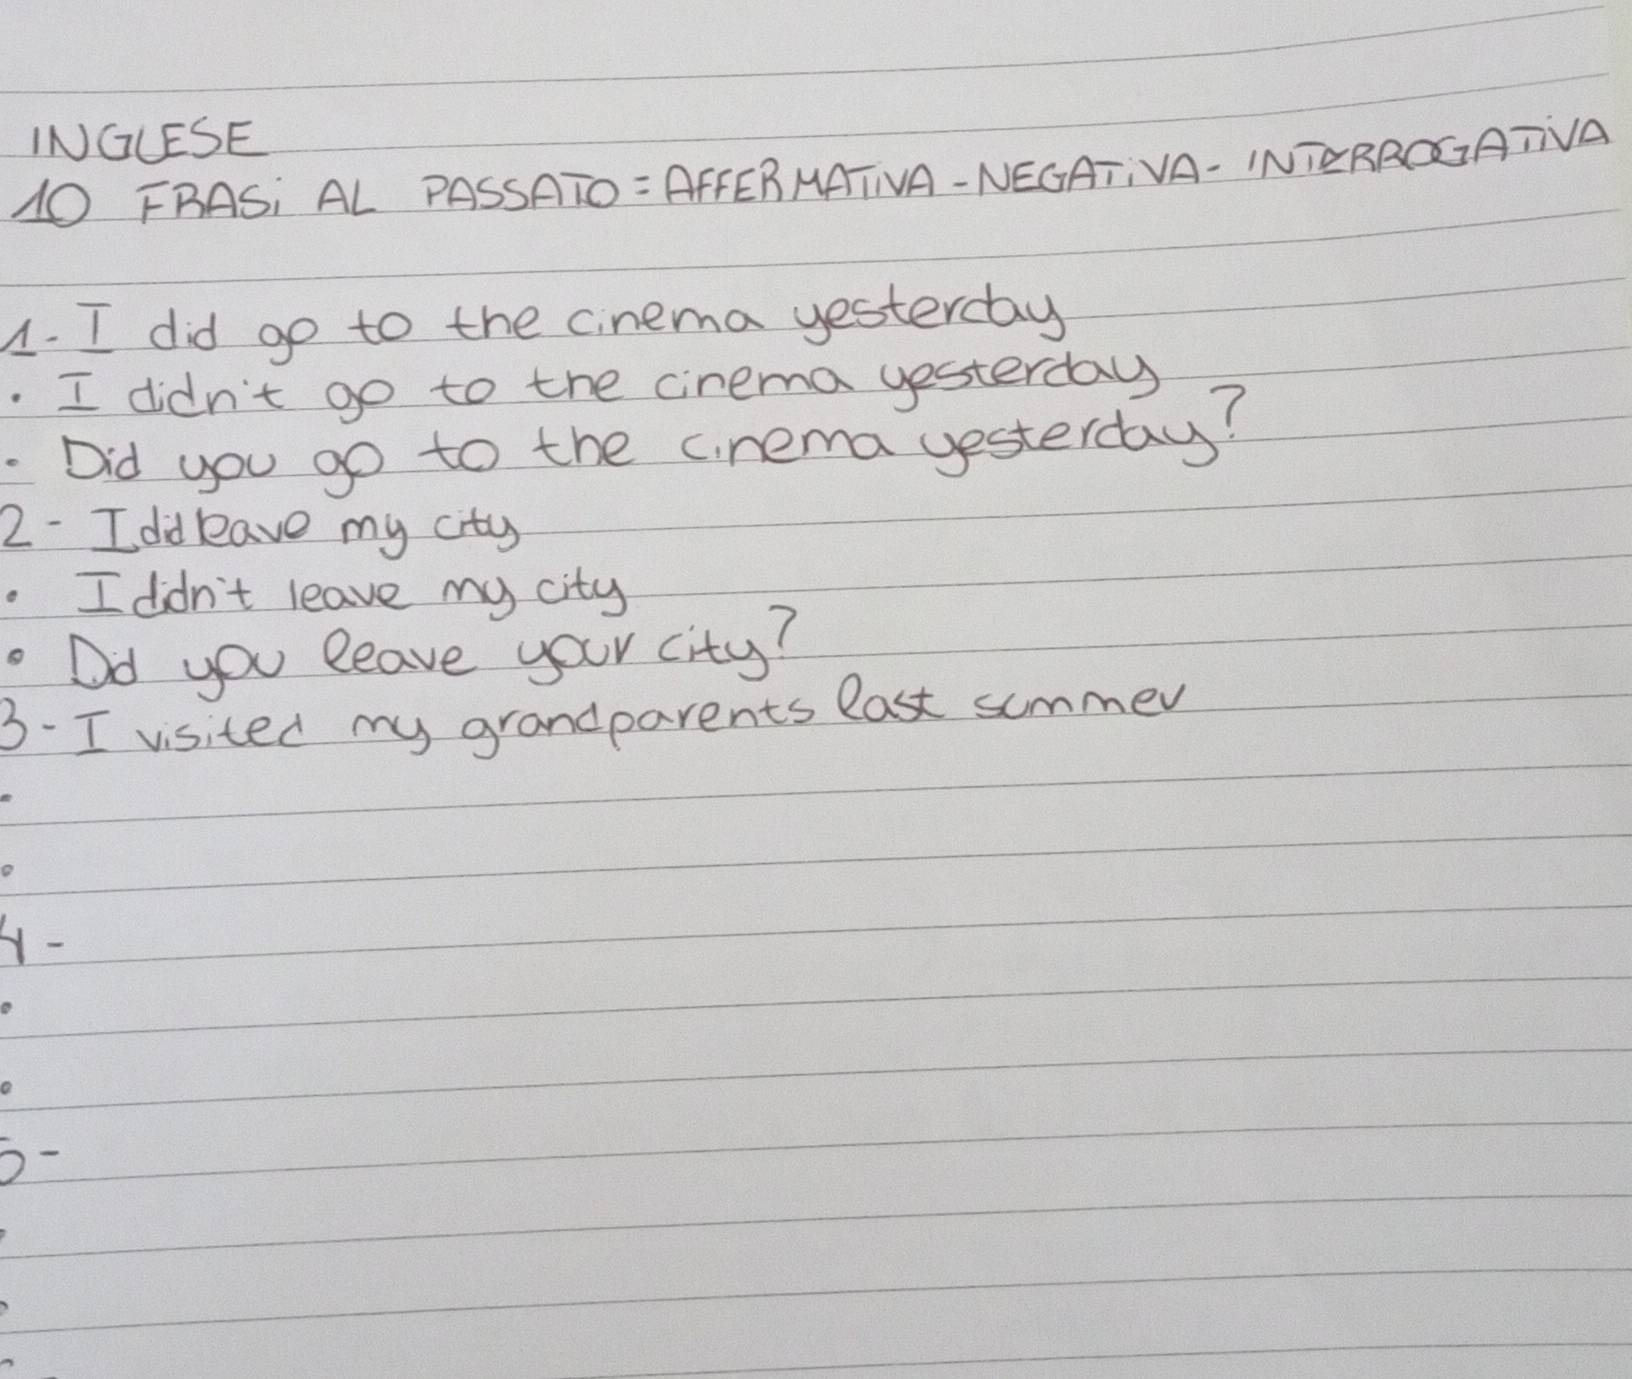 INGLESE
10 FRASI AL PASSATO = AFFERMATIVA - NEGATIVA - INTERROGATIVA
1 - I did go to the cinema yesterday
• I didn't go to the cinema yesterday
• Did you go to the cinema yesterday?
2 - I did leave my city
• I didn't leave my city
• Did you leave your city?
3 - I visited my grandparents last summer
•
•
4 -
•
•
5 -
•
•